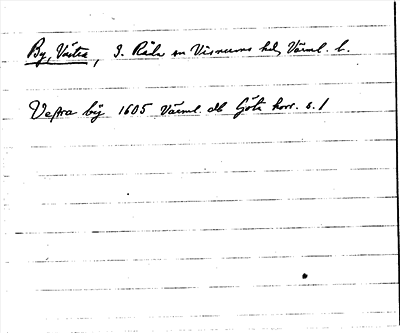 By, Västra, S. Råda sn Visnums hd, Värml. l.
Vestra bÿ 1605 Värml. db Göta horr. s. 1